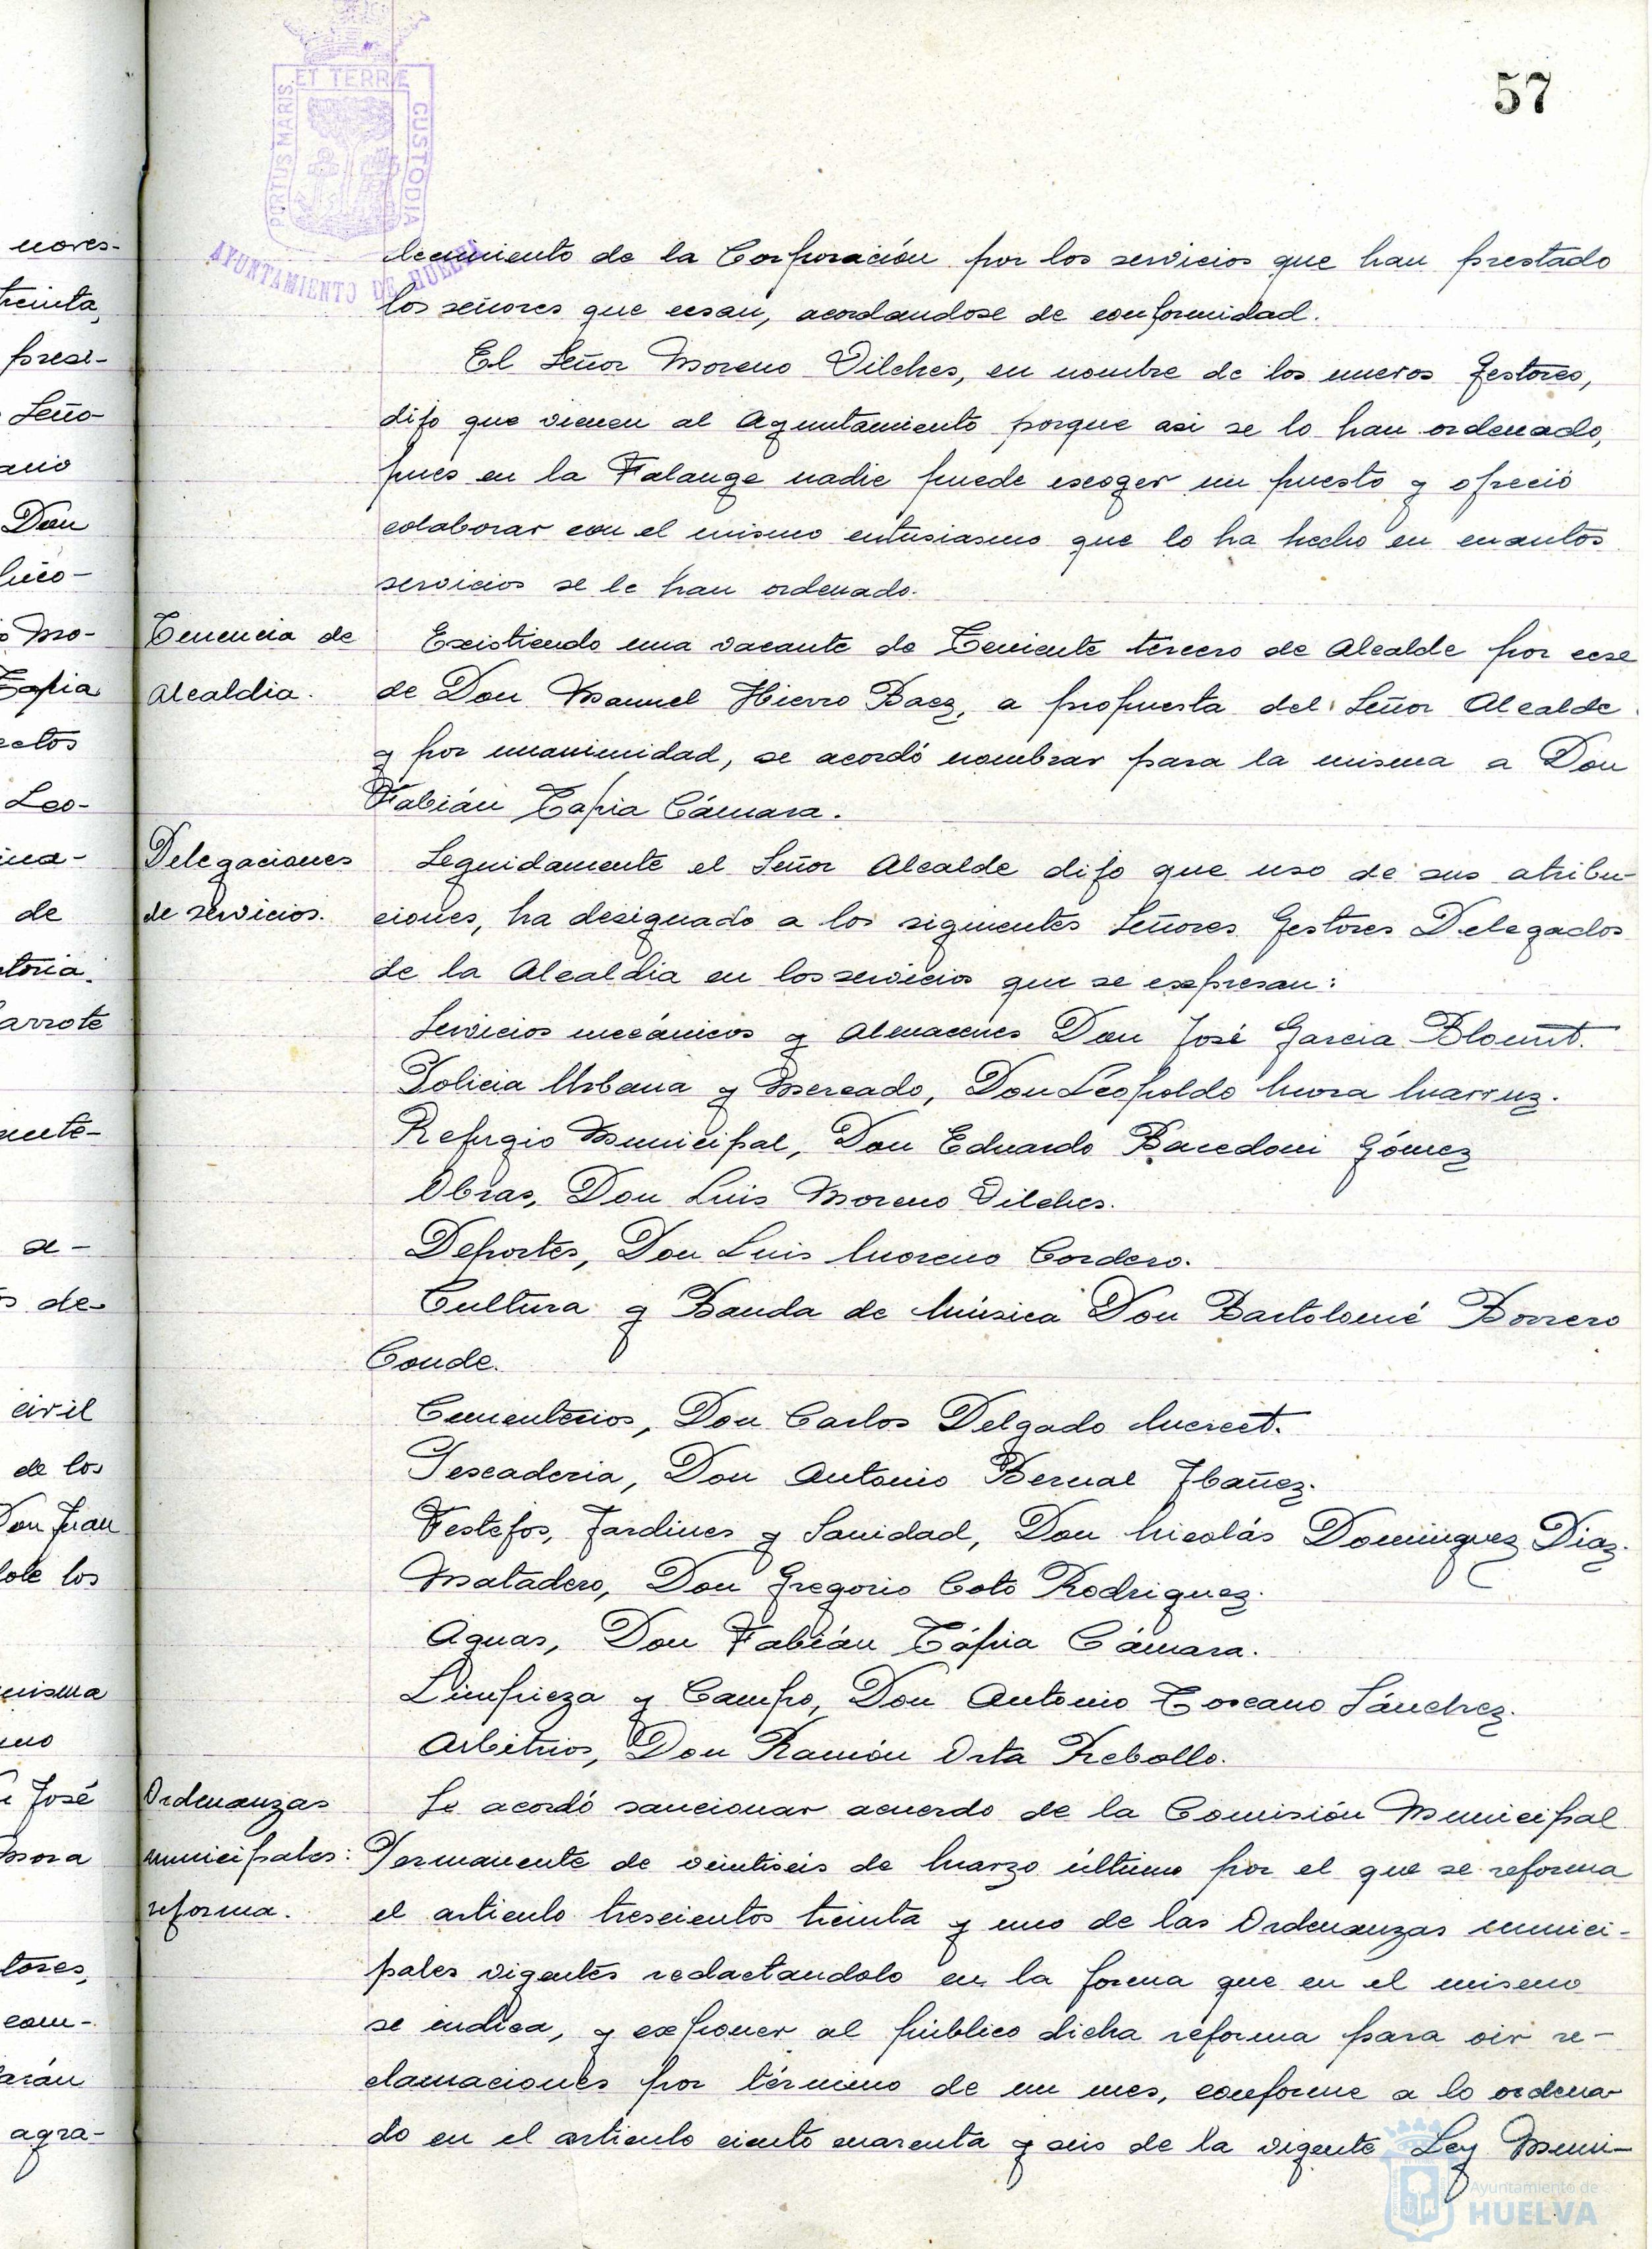 57
PORTUS MARIS ET TERRE CUSTODIA
AYUNTAMIENTO DE HUELVA
nores-
treinta,
presi-
Seño-
Don
Mo-
Tapia
Leo-
de
toria.
arrote
a-
de-
civil
de los
Don Juan
los
misma
José
Mora
tores,
com-
arán
agra-
decimiento de la Corporación por los servicios que han prestado
los señores que cesan, acordandose de conformidad.
El Señor Moreno Vilches, en nombre de los nuevos Gestores,
dijo que vienen al Ayuntamiento porque asi se lo han ordenado,
pues en la Falange nadie puede escoger un puesto y ofreció
colaborar con el mismo entusiasmo que lo ha hecho en cuantos
servicios se le han ordenado.
Tenencia de
Alcaldia.
Existiendo una vacante de Teniente tercero de Alcalde por cese
de Don Manuel Hierro Baez, a propuesta del Señor Alcalde
y por unanimidad, se acordó nombrar para la misma a Don
Fabián Tapia Cámara.
Delegaciones
de servicios.
Seguidamente el Señor Alcalde dijo que uso de sus atribu-
ciones, ha designado a los siguientes Señores Gestores Delegados
de la Alcaldia en los servicios que se expresan:
Servicios mecánicos y Almacenes Don José Garcia Blount.
Policia Urbana y Mercado, Don Leopoldo Mora Marruz.
Refugio Municipal, Don Eduardo Bacedoni Gómez
Obras, Don Luis Moreno Vilches.
Deportes, Don Luis Moreno Cordero.
Cultura y Banda de Música Don Bartolomé Borrero
Conde.
Cementerios, Don Carlos Delgado Mercet.
Pescaderia, Don Antonio Bernal Ibañez.
Festejos, Jardines y Sanidad, Don Nicolás Dominguez Diaz.
Matadero, Don Gregorio Coto Rodriguez.
Aguas, Don Fabián Tápia Cámara.
Limpieza y Campo, Don Antonio Toscano Sánchez.
Arbitrios, Don Ramón Orta Rebollo.
Ordenanzas
municipales:
reforma.
Se acordó sancionar acuerdo de la Comisión Municipal
Permanente de veintiseis de Marzo último por el que se reforma
el articulo trescientos treinta y uno de las Ordenanzas munici-
pales vigentes redactandolo en la forma que en el mismo
se indica, y exponer al público dicha reforma para oir re-
clamaciones por término de un mes, conforme a lo ordena-
do en el articulo ciento cuarenta y seis de la vigente Ley Muni-
Ayuntamiento de
HUELVA